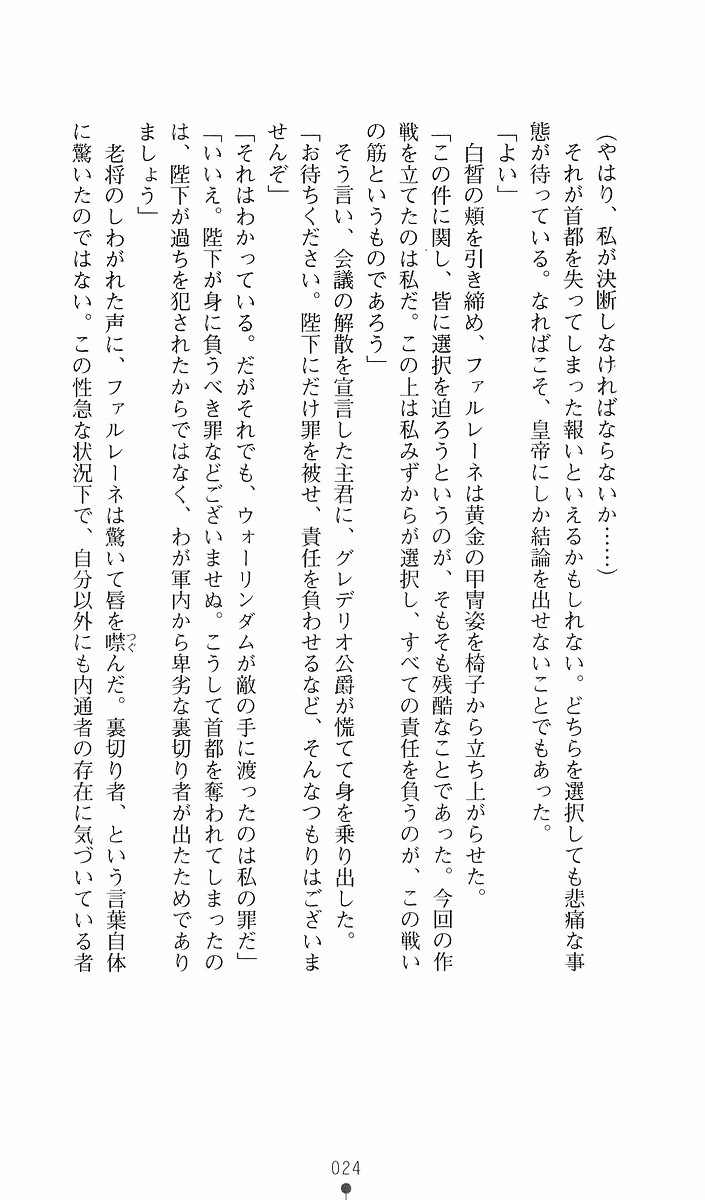 （やはり、私が決断しなければならないか……）
　それが首都を失ってしまった報いといえるかもしれない。どちらを選択しても悲痛な事
態が待っている。なればこそ、皇帝にしか結論を出せないことでもあった。
「よい」
　白皙の頬を引き締め、ファルレーネは黄金の甲冑姿を椅子から立ち上がらせた。
「この件に関し、皆に選択を迫ろうというのが、そもそも残酷なことであった。今回の作
戦を立てたのは私だ。この上は私みずからが選択し、すべての責任を負うのが、この戦い
の筋というものであろう」
　そう言い、会議の解散を宣言した主君に、グレデリオ公爵が慌てて身を乗り出した。
「お待ちください。陛下にだけ罪を被せ、責任を負わせるなど、そんなつもりはございま
せんぞ」
「それはわかっている。だがそれでも、ウォーリンダムが敵の手に渡ったのは私の罪だ」
「いいえ。陛下が身に負うべき罪などございませぬ。こうして首都を奪われてしまったの
は、陛下が過ちを犯されたからではなく、わが軍内から卑劣な裏切り者が出たためであり
ましょう」
　老将のしわがれた声に、ファルレーネは驚いて唇を噤んだ。裏切り者、という言葉自体
つぐ
に驚いたのではない。この性急な状況下で、自分以外にも内通者の存在に気づいている者
024